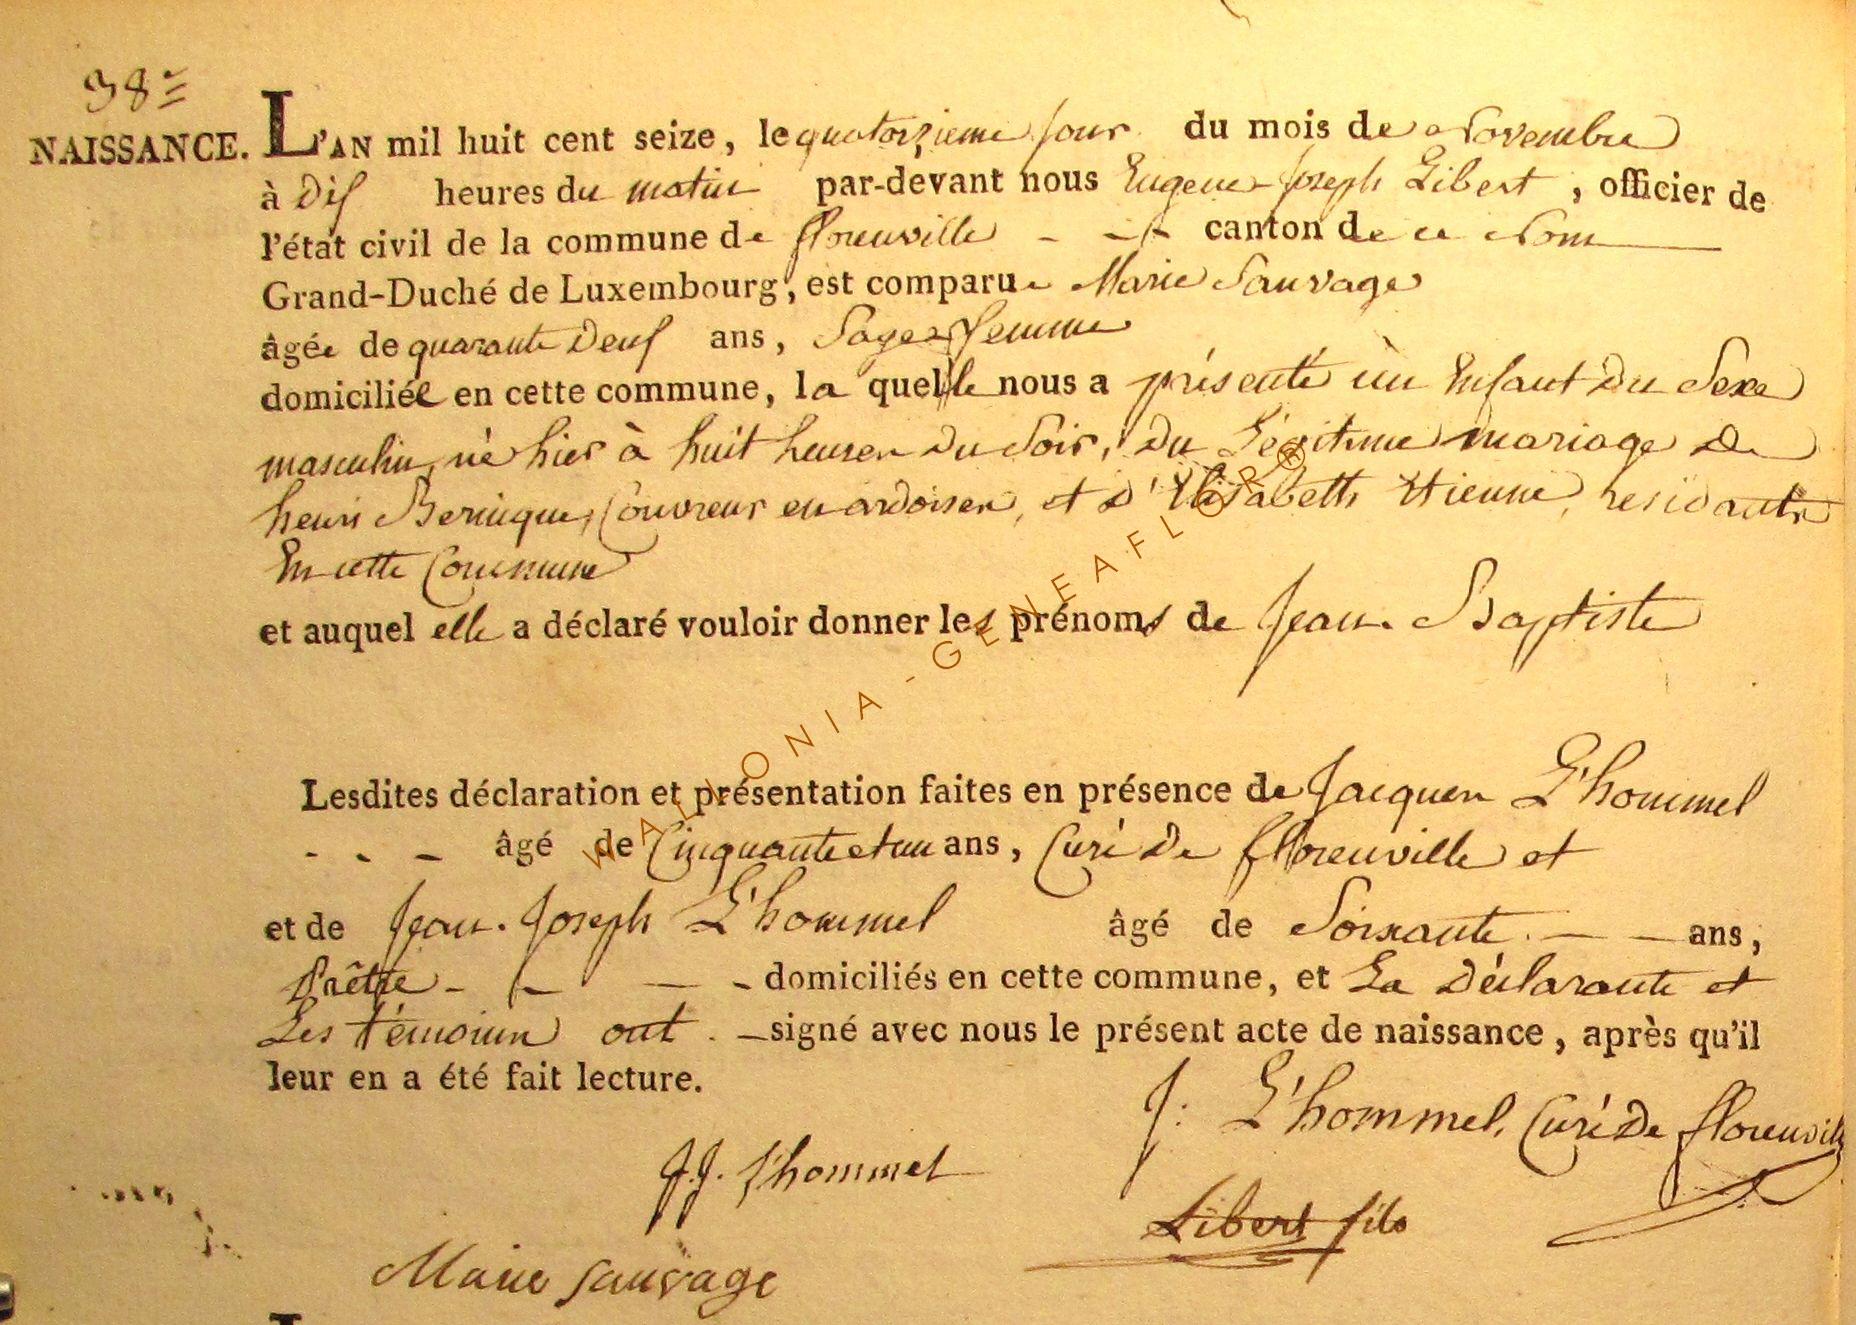 38e
NAISSANCE. L'AN mil huit cent seize, le quatorzieme jour du mois de Novembre
à Dix heures du matin par-devant nous Eugene Joseph Libert, officier de
l'état civil de la commune de florenville - - - canton de ce Nom
Grand-Duché de Luxembourg, est comparue Marie Sauvage
âgée de quarante Deux ans, Sage femme
domiciliée en cette commune, la quelle nous a présenté un Enfant Du Sexe
masculin, né hier à huit heures Du Soir, Du Légitime mariage De
henri Couvreur en ardoises, et D'Elisabeth Etienne, residants
En cette Commune
et auquel elle a déclaré vouloir donner les prénoms de Jean-Baptiste
WALLONIA-GENEAFLOR®
Lesdites déclaration et présentation faites en présence de Jacques L'hommel
- - - âgé de Cinquante et un ans, Curé De florenville et
et de Jean-Joseph L'hommel âgé de Soixante - - - ans,
Prêtre - - - - domiciliés en cette commune, et La Déclarante et
Les témoins ont - - signé avec nous le présent acte de naissance, après qu'il
leur en a été fait lecture.
J. L'hommel, Curé De florenville
J.J. l'hommel
Libert fils
Marie sauvage